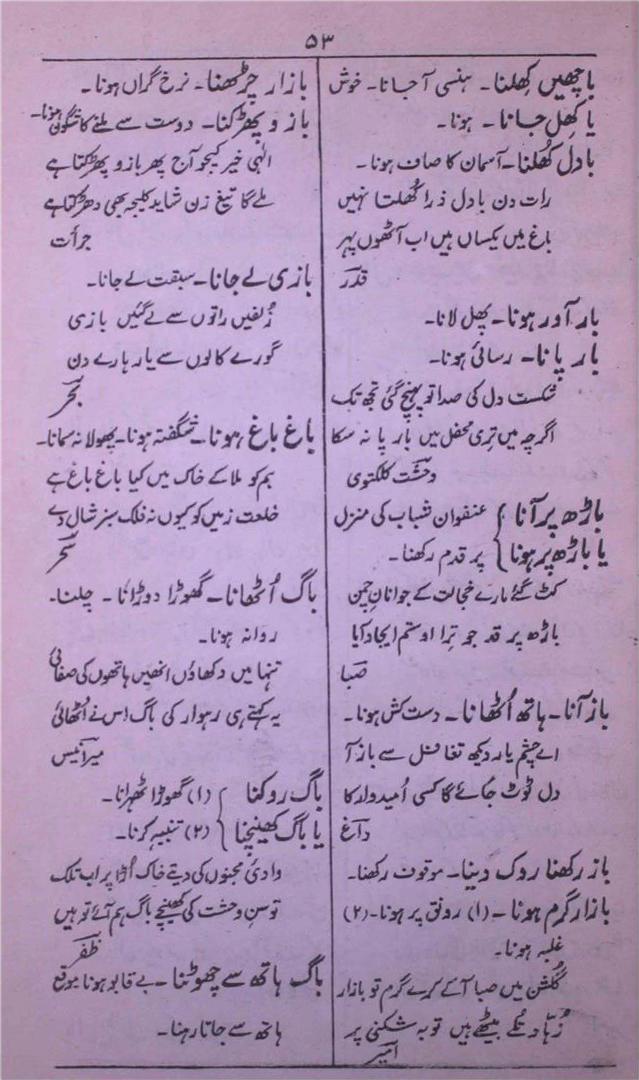 ۵۳
باچھیں کھلنا۔ ہنسی آجانا۔ خوش
یا کھل جانا۔ ہونا۔
بادل کھلنا۔ آسمان کا صاف ہونا۔
رات دن بادل ذرا کھلتا نہیں
باغ میں یکساں ہیں اب آٹھوں پہر
قدر
بار آور ہونا۔ پھل لانا۔
بار پانا۔ رسائی ہونا۔
شکست دل کی صدا تو پہنچ گئی تجھ تک
اگرچہ میں تری محفل میں بار پا نہ سکا
وحشت کلکتوی
باڑھ پر آنا } عنفوان شباب کی منزل
یا باڑھ پر ہونا } پر قدم رکھنا۔
کٹ گئے مارے خجالت کے جوانانِ چمن
باڑھ پر قد جو ترا او ستم ایجاد آیا
صبا
باز آنا۔ ہاتھ اُٹھانا۔ دست کش ہونا۔
اے چشم یار دیکھ تغافل سے باز آ
دل ٹوٹ جائے گا کسی اُمیدوار کا
داغ
باز رکھنا روک دینا۔ موقوف رکھنا۔
بازار گرم ہونا۔ (۱) رونق پر ہونا۔ (۲)
غلبہ ہونا۔
گلشن میں صبا آکے کرے گرم تو بازار
زُہاد تُلے بیٹھے ہیں توبہ شکنی پر
امیر
بازار چڑھنا۔ نرخ گراں ہونا۔
بازو پھڑکنا۔ دوست سے ملنے کا شگون ہونا۔
الٰہی خیر کیجو آج پھر بازو پھڑکتا ہے
ملے گا تیغ زن شاید کلیجہ بھی دھڑکتا ہے
جرأت
بازی لے جانا۔ سبقت لے جانا۔
زُلفیں راتوں سے لے گئیں بازی
گورے گالوں سے یار ہارے دن
بحر
باغ باغ ہونا۔ شگفتہ ہونا۔ پھولا نہ سمانا۔
ہم کو ملا کے خاک میں کیا باغ باغ ہے
خلعت زمیں کو کیوں نہ فلک سبز شال دے
سحر
باگ اُٹھانا۔ گھوڑا دوڑانا۔ چلنا۔
روانہ ہونا۔
تنہا میں دکھاؤں انھیں ہاتھوں کی صفائی
یہ کہتے ہی رہوار کی باگ اس نے اُٹھائی
میر انیس
باگ روکنا } (۱) گھوڑا ٹھہرانا۔
یا باگ کھینچنا } (۲) تنبیہ کرنا۔
وادیٔ مجنوں کی دیتے خاک اُڑا پر اب تلک
توسنِ وحشت کی کھینچے باگ ہم آئے تو ہیں
ظفر
باگ ہاتھ سے چھوٹنا۔ بے قابو ہونا موقع
ہاتھ سے جاتا رہنا۔